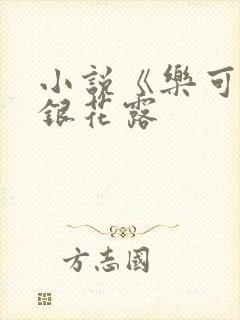 小説《樂可
銀花露
方志國